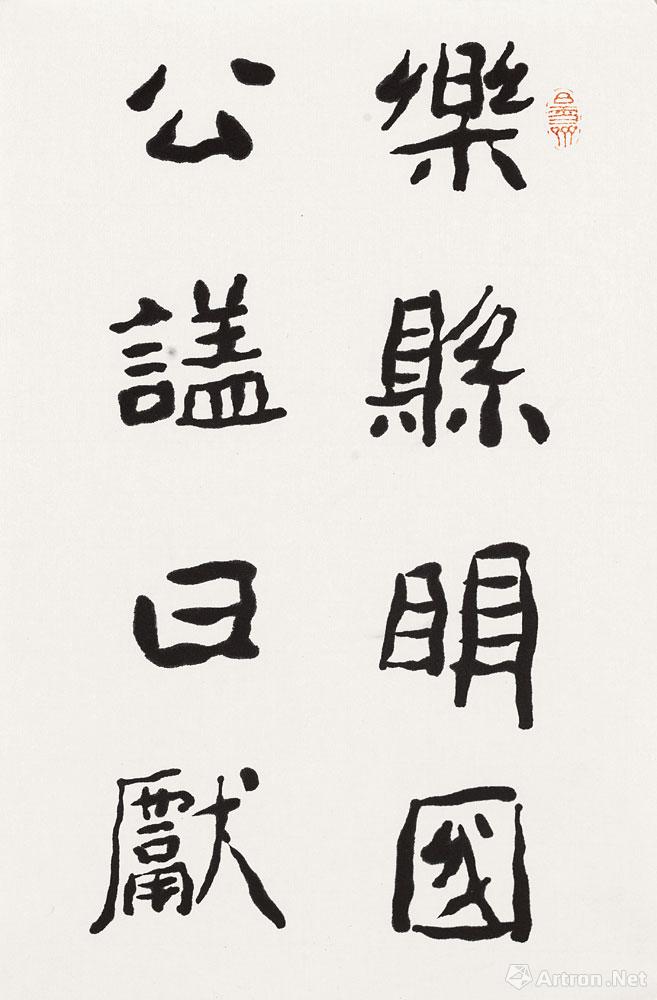 樂縣明國
公謚曰獻
Artron.Net